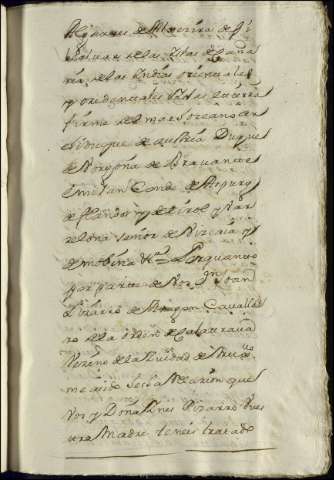 Algarves de Algecira de Gi
braltar de las Islas de Cana
ria de las Indias orientales
y ocidentales Yslas tierra
firme del mar oceano ar
chiduque de austria Duque
de Borgoña de Bravante
y milan Conde de Aspurg
de flandes y de tirol y Bar
celona señor de Vizcaia y
de molina &ca Por quanto
por parte de Vos Don Joan
de Aragon Cavalle
ro de la orden de Calatrava
Vezino de la Ciudad de
me a sido hecha relacion que
Vos y Doña Ines Pizarro Vues
tra Madre teneis tratado